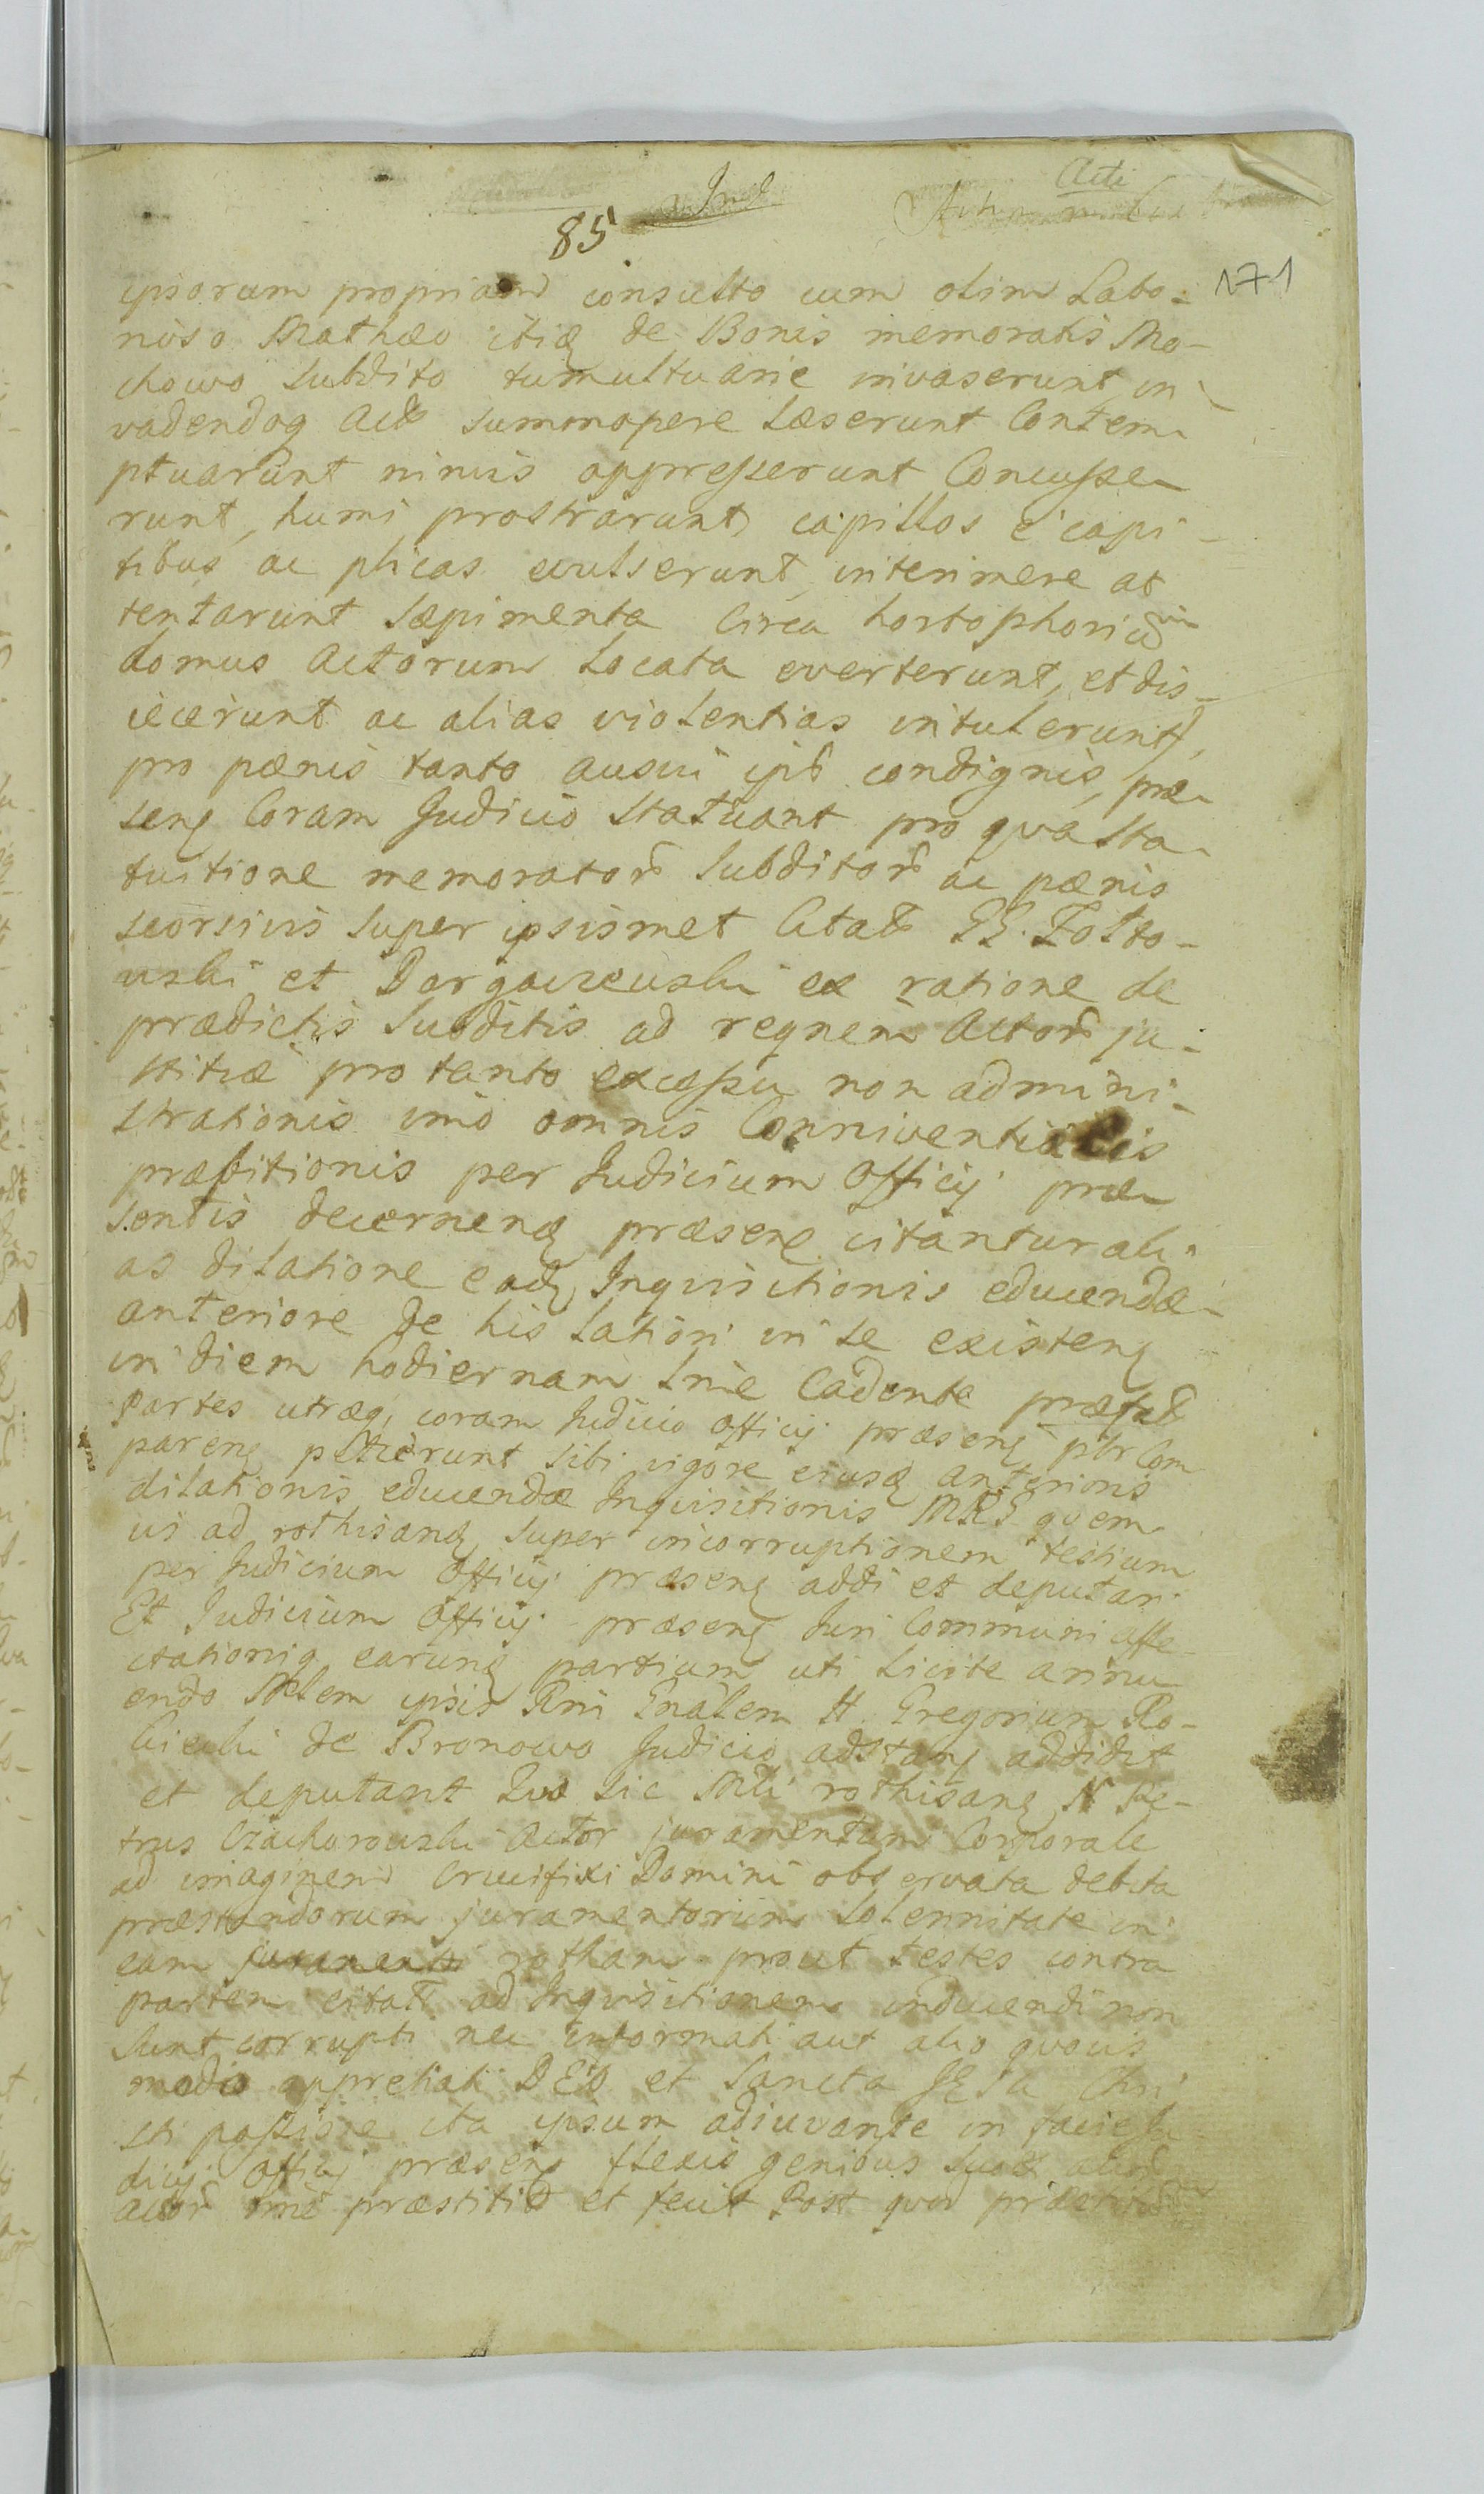 Acti
85
171
ipsorum propriam consulto cum olim Labo-
rioso Mathæo itiq de Bonis memoratis Mo-
chowo Subdito tumultuarie invaserunt, in-
vadendoq Act summopere læserunt Contem-
ptuarunt nimis oppresserunt Concusse-
runt, humi prostrarunt, capillos e capi-
tibus ac plicas evulserunt, interimere at
tentarunt Sæpimenta Circa hortophoriũ
domus Actorum Locata everterunt, et dis-
iecerunt ac alias violentias intulerunt,
pro pænis tanto ausui ipd condignis, præ-
senq Coram Judicio Statuant pro qva sta-
tuitione memorator Subditor ac pænis
seorsivis super ipsismet Citat GG. Zolto-
wski et Dargaczewski ex ratione de
prædictis Subditis ad reqnem Actor ju-
stitiæ pro tanto excessu non admini-
strationis imo omnis Conniventiæ
præbitionis per Judicium Officij præ-
sentis decernenq præsenq citantur ali-
as dilatione eadq Inqvisitionis educendæ
anteriore de his latiori in se existenq
in diem hodiernam Snie Cadente præfat
partes utræq, coram Judicio Officij præsenq pbr Com
parenq petierunt Sibi vigore eiusq anterioris
dilationis educendæ Inqvisitionis MRG qvem
vis ad rothisanq super incorruptionem testium
per Judicium Officij præsenq addi et deputari
Et Judicium Officij præsenq Juri Communi affe-
ctationiq earunq partium uti licite annu-
endo Mlem ipsis Rni Gnalem H. Gregorium Ro-
cicki de Bronowo Judicio adstanq addidit
et deputavit Quo sic Mli rothisanq N Pe-
trus Czachorowski Actor juramentum Corporale
ad imaginem Crucifixi Domini observata debita
præstandorum juramentorum Solennitate in
eam rotham prout testes contra
partem citat ad Inqvisitionem inducendi non
sunt corrupti nec informati aut alio qvovis
modo appretiati DEO et Sancta JESu Chri
sti passione ita ipsum adiuvante in facie Ju
dicij Officij præsenq flexis genibus
Actor præstitit et fecit Post qvod